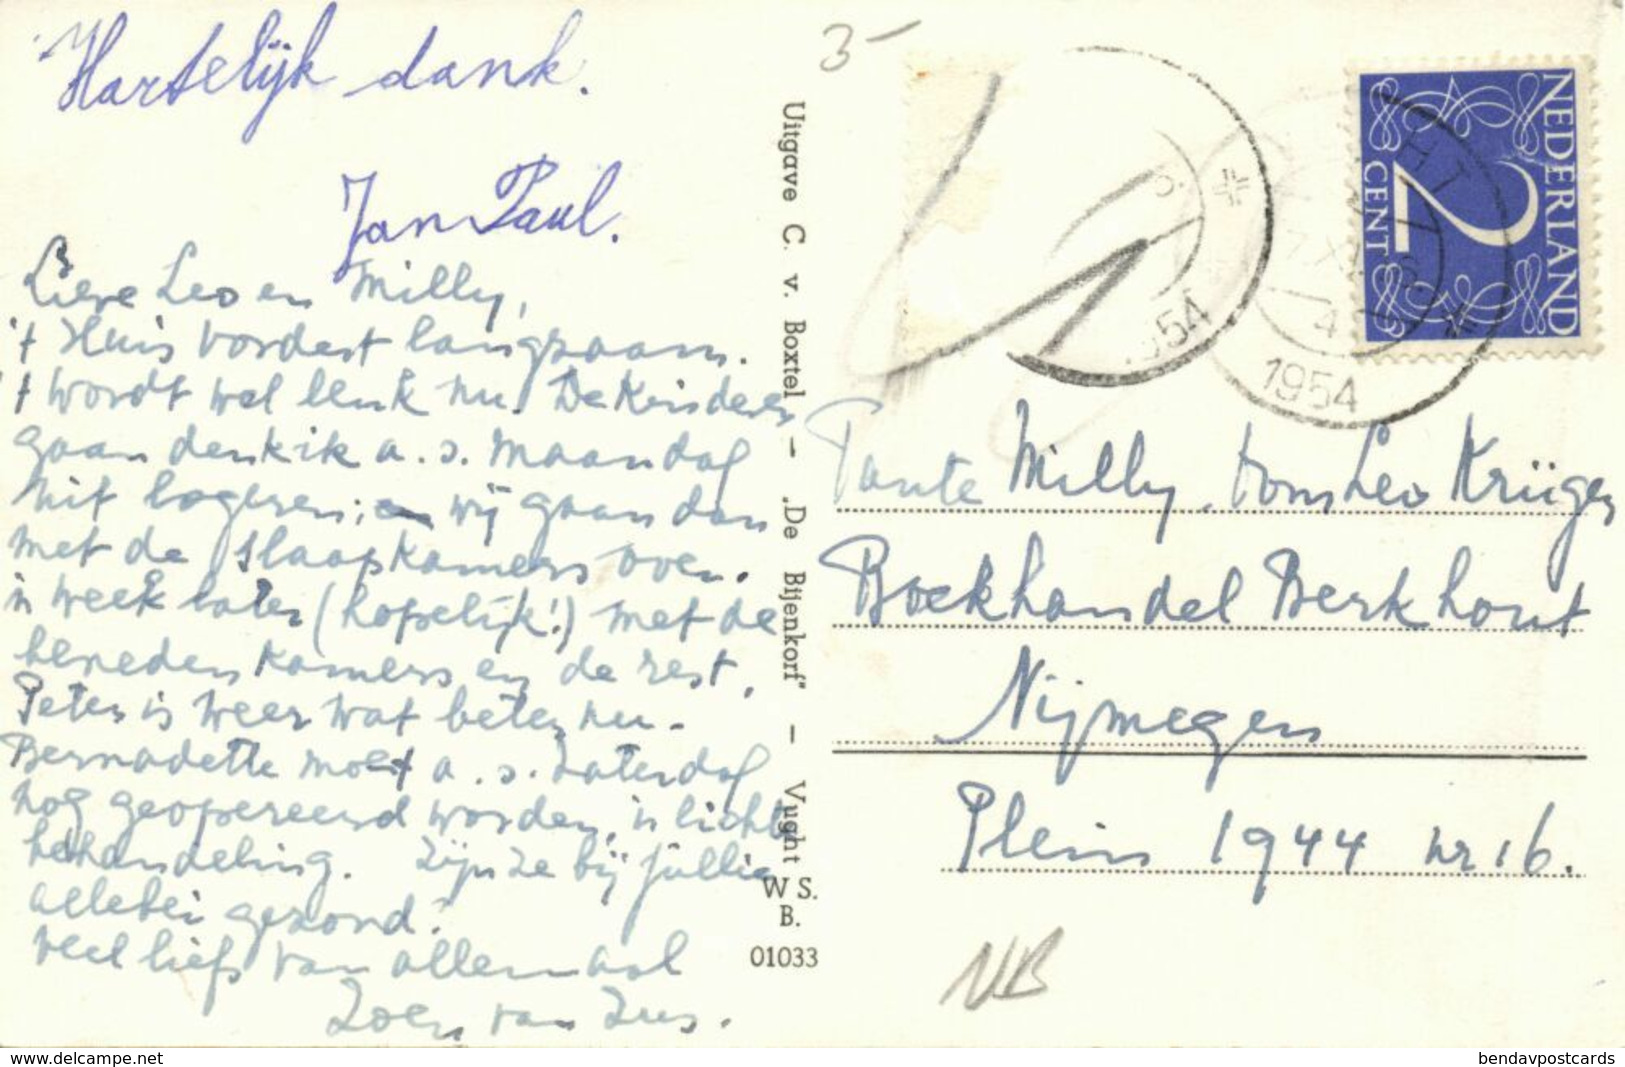 Hartelijk dank.
Jan Paul.
Lieve Leo en Milly,
't Huis vordert langzaam.
't wordt wel leuk nu. De Kinderen
gaan denk ik a.s. maandag
uit logeren; en wij gaan dan
met de slaapkamers over.
'n week later (hopelijk!) met de
beneden kamers en de rest.
Peter is weer wat beter nu.
Bernadette moet a.s. Zaterdag
nog geopereerd worden, 'n lichte
behandeling. Zijn ze bij jullie
allebei gezond?
veel liefs van allemaal
Zoen van Zus.
Uitgave C. v. Boxtel — „De Bijenkorf" — Vught
W S.
B.
01033
3-
1954
1954
NEDERLAND
2
CENT
Tante Milly, oom Leo Krüger
Boekhandel Berkhout
Nijmegen
Plein 1944 nr 16.
NB
www.delcampe.net
bendavpostcards